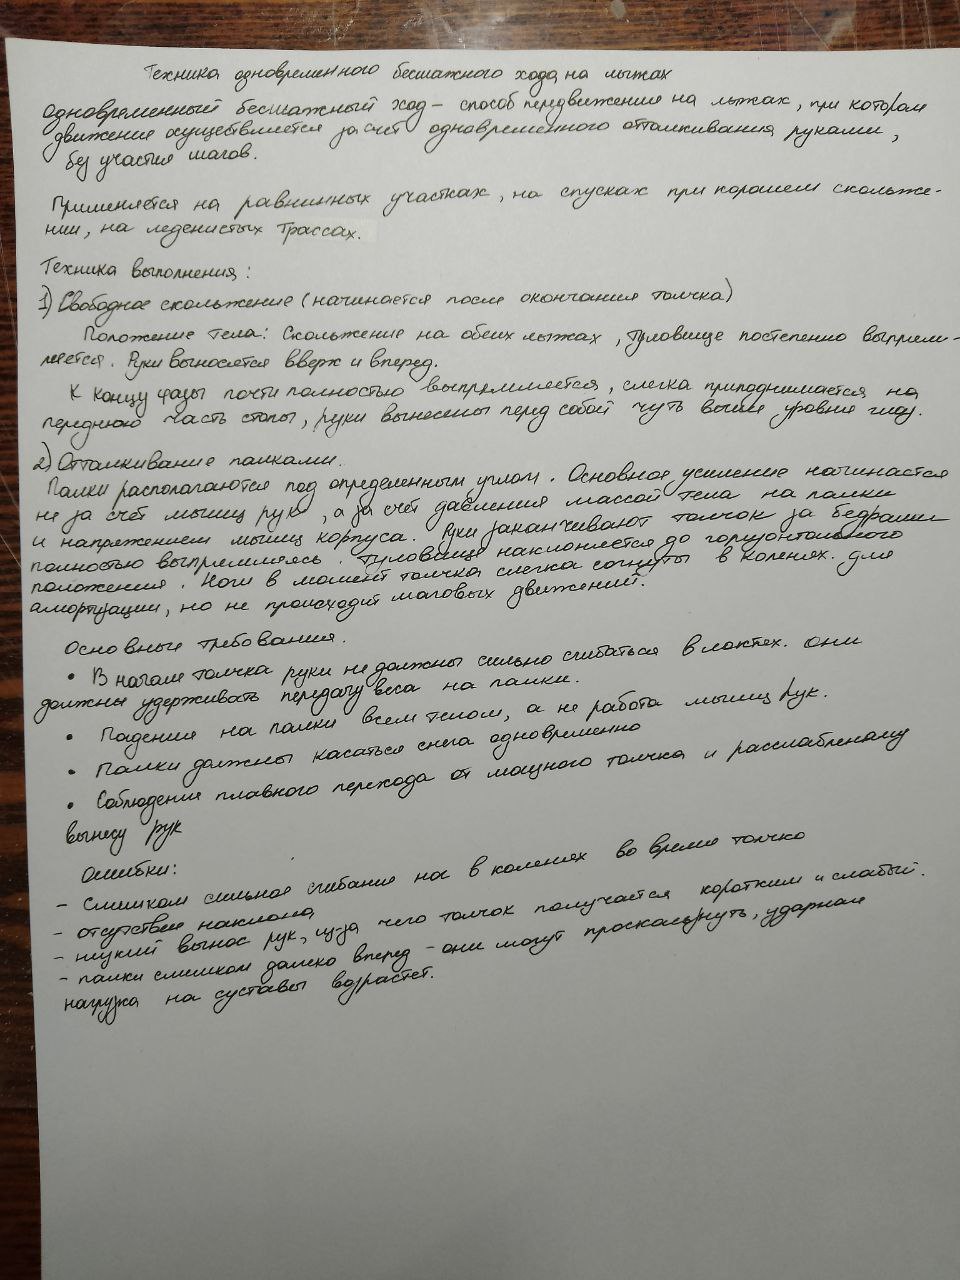 Техника одновременного бесшажного хода на лыжах
Одновременный бесшажный ход - способ передвижения на лыжах, при котором
движение осуществляется за счёт одновременного отталкивания руками,
без участия шагов.
Применяется на равнинных участках, на спусках при хорошем скольже-
нии, на леденистых трассах.
Техника выполнения:
1) Свободное скольжение (начинается после окончания толчка)
Положение тела: Скольжение на обеих лыжах, туловище постепенно выпрям-
ляется. Руки выносятся вверх и вперед.
К концу фазы почти полностью выпрямляется, слегка приподнимается на
переднюю часть стопы, руки вынесены перед собой чуть выше уровня глаз.
2) Отталкивание палками.
Палки располагаются под определенным углом. Основное усиление начинается
не за счёт мышц рук, а за счёт давления массой тела на палки
и напряжением мышц корпуса. Руки заканчивают толчок за бедрами
полностью выпрямляясь. Туловище наклоняется до горизонтального
положения. Ноги в момент толчка слегка согнуты в коленях. для
амортизации, но не происходит маховых движений.
Основные требования.
• В начале толчка руки не должны сильно сгибаться в локтях. они
должны удерживать передачу веса на палки.
• Падения на палки всем телом, а не работа мышц рук.
• Палки должны касаться снега одновременно
• Соблюдения плавного перехода от мощного толчка и расслабленому
выносу рук
Ошибки:
- Слишком сильное сгибание ног в коленях во время толчка
- отсутствие наклона
- низкий вынос рук, из-за чего толчок получается коротким и слабый.
- палки слишком далеко вперед - они могут проскользнуть, ударная
нагрузка на суставы возрастет.